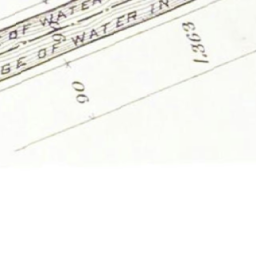 OF WATER
GE OF WATER IN
90
1,363